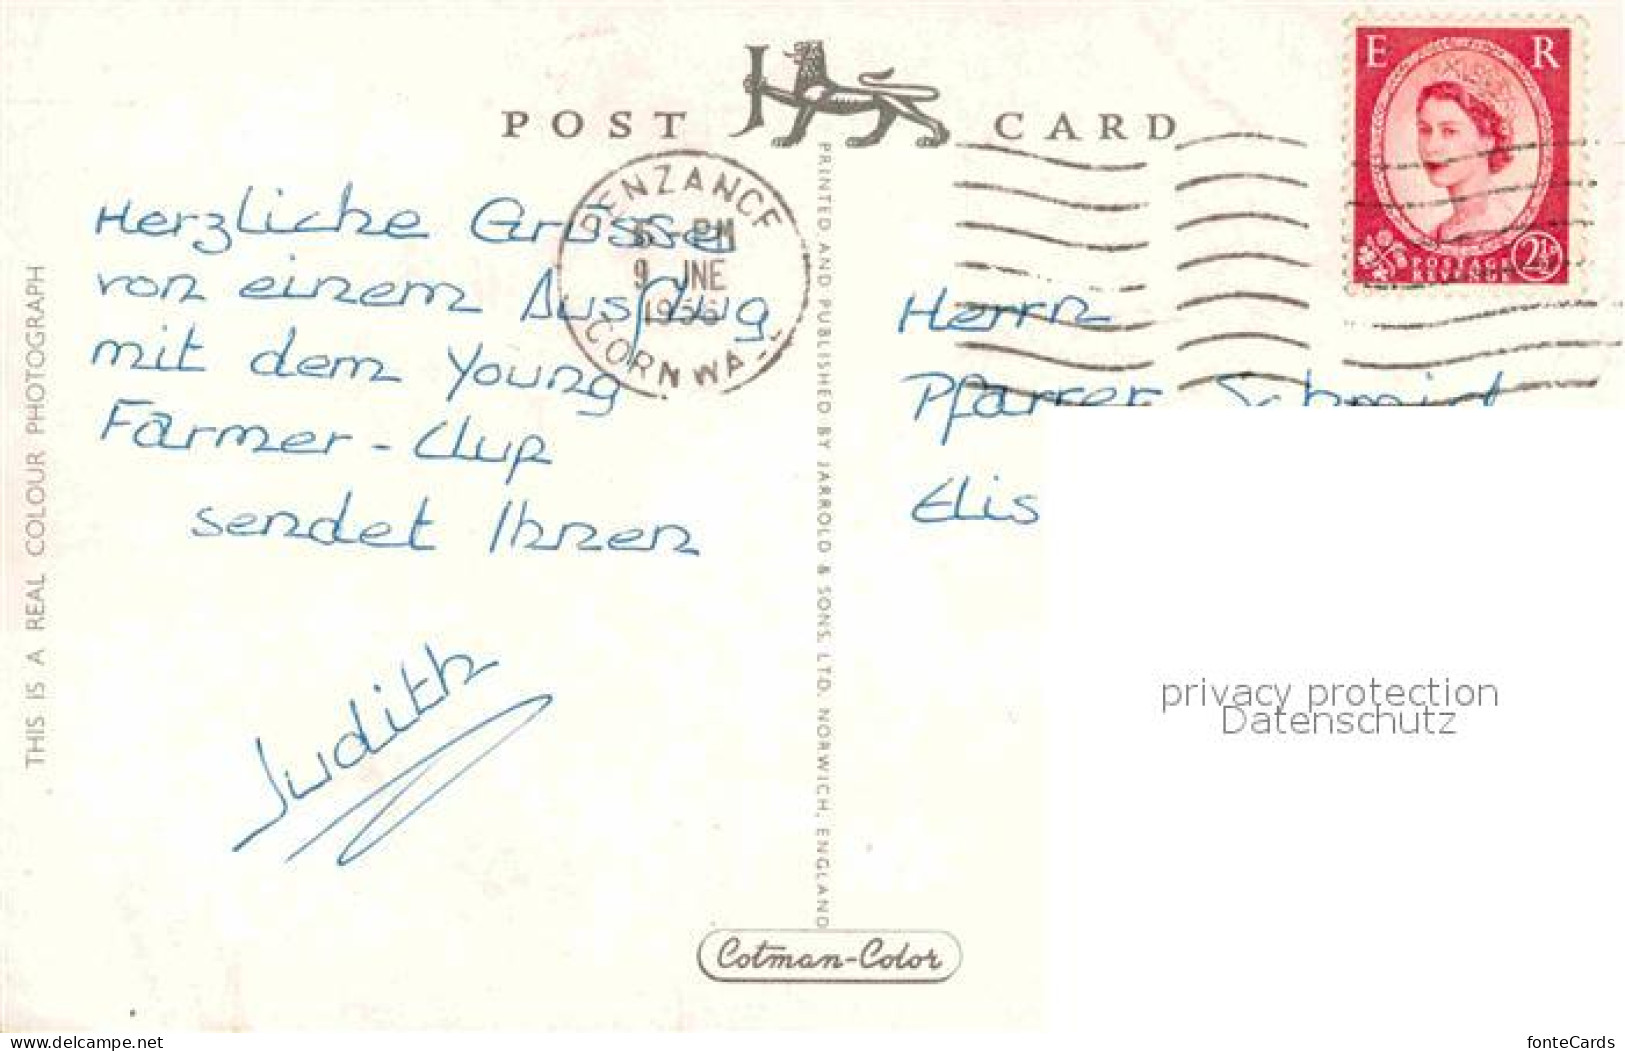 POST CARD
E R
POSTAGE
REVENUE
2½
PENZANCE
PM
9 JNE
1956
CORNWALL
Herzliche Grüsse
von einem Ausflug
mit dem Young
Farmer-Clup
sendet Ihnen
Judith
Herrn
Pfarrer Schmid
Elis
THIS IS A REAL COLOUR PHOTOGRAPH
PRINTED AND PUBLISHED BY JARROLD & SONS, LTD. NORWICH, ENGLAND
Cotman-Color
privacy protection
Datenschutz
www.ansichtskartenversand.com
fonteCards